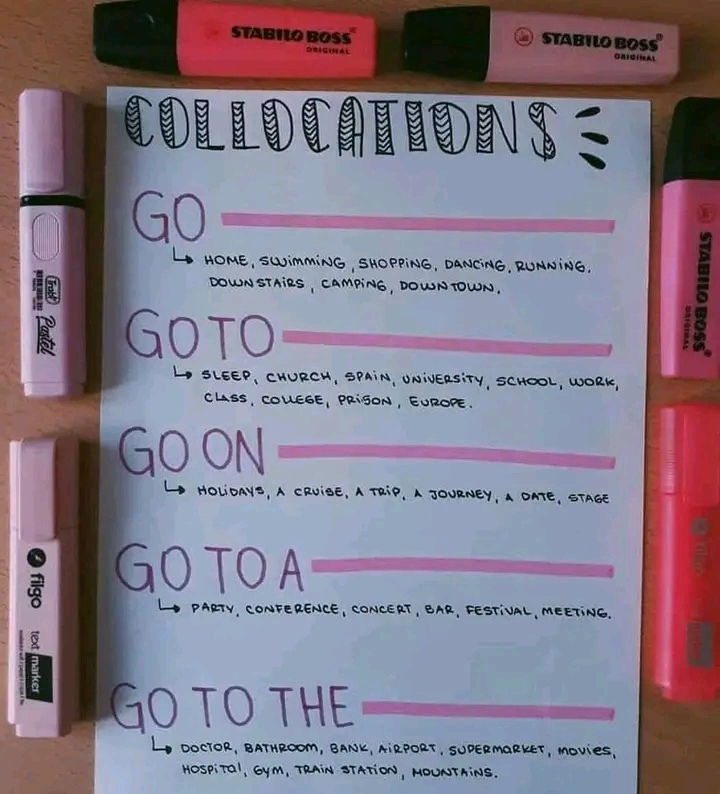 STABILO BOSS®
ORIGINAL
STABILO BOSS®
ORIGINAL
COLLOCATIONS
GO
HOME, SWIMMING, SHOPPING, DANCING, RUNNING,
DOWNSTAIRS, CAMPING, DOWNTOWN.
GO TO
SLEEP, CHURCH, SPAIN, UNIVERSITY, SCHOOL, WORK,
CLASS, COLLEGE, PRISON, EUROPE.
GO ON
HOLIDAYS, A CRUISE, A TRIP, A JOURNEY, A DATE, STAGE
GO TO A
PARTY, CONFERENCE, CONCERT, BAR, FESTIVAL, MEETING.
GO TO THE
DOCTOR, BATHROOM, BANK, AIRPORT, SUPERMARKET, MOVIES,
HOSPITAL, GYM, TRAIN STATION, MOUNTAINS.
Pastel
filgo
text
marker
STABILO BOSS®
ORIGINAL
filgo